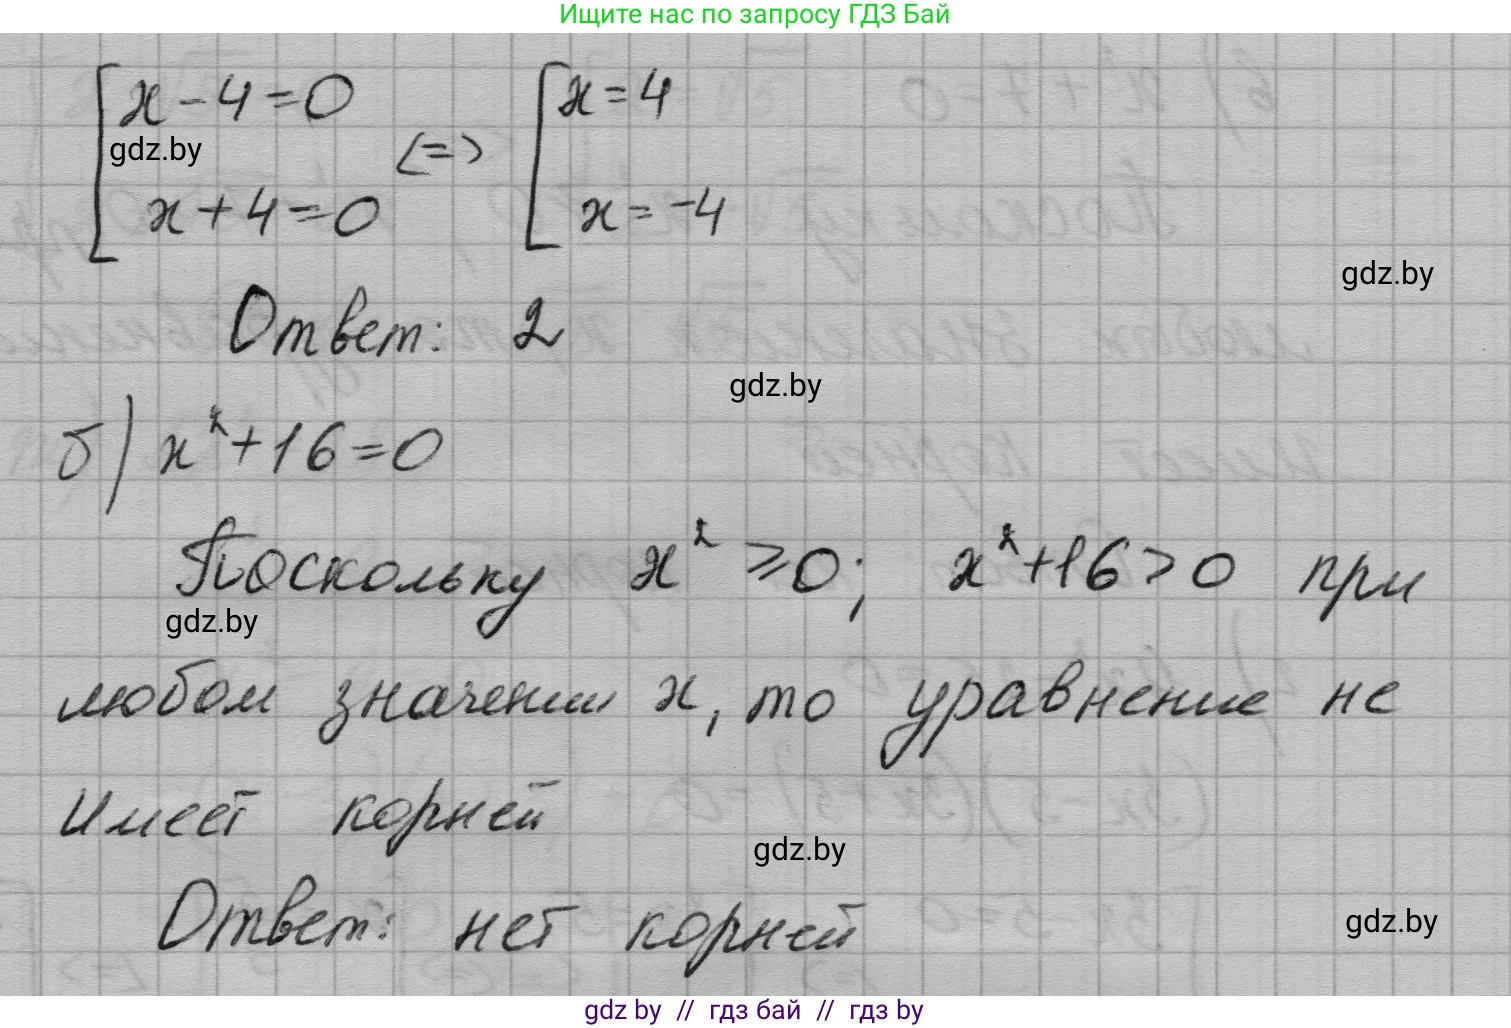 Ищите нас по запросу ГДЗ Бай
[ x - 4 = 0 <=> [ x = 4
gdz.by
x + 4 = 0 x = -4
gdz.by
Ответ: 2
gdz.by
б) x² + 16 = 0
Поскольку x² ⩾ 0; x² + 16 > 0 при
gdz.by
любом значении x, то уравнение не
имеет корней
gdz.by
Ответ: нет корней
gdz.by
gdz by // гдз бай // гдз by